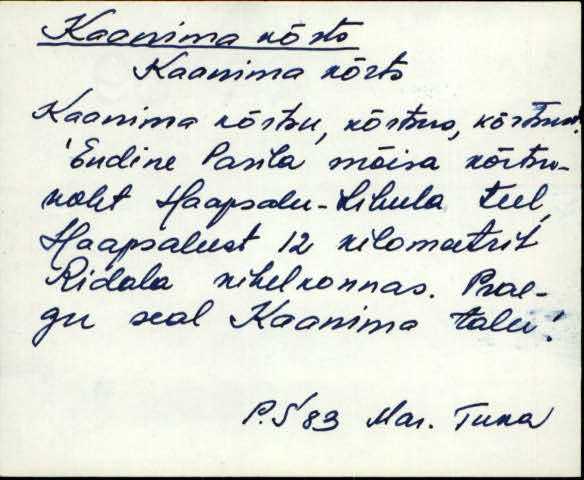 Kaanima kõrts
Kaanima kõrts
Kaanima kõrtsu, kõrtsus, kõrtsust.
'Endine Parila mõisa kõrtsu-
koht Haapsalu-Lihula teel,
Haapsalust 12 kilomeetrit
Ridala kihelkonnas. Prae-
gu seal Kaanima talu'.
P.S'83 Mar. Tuka